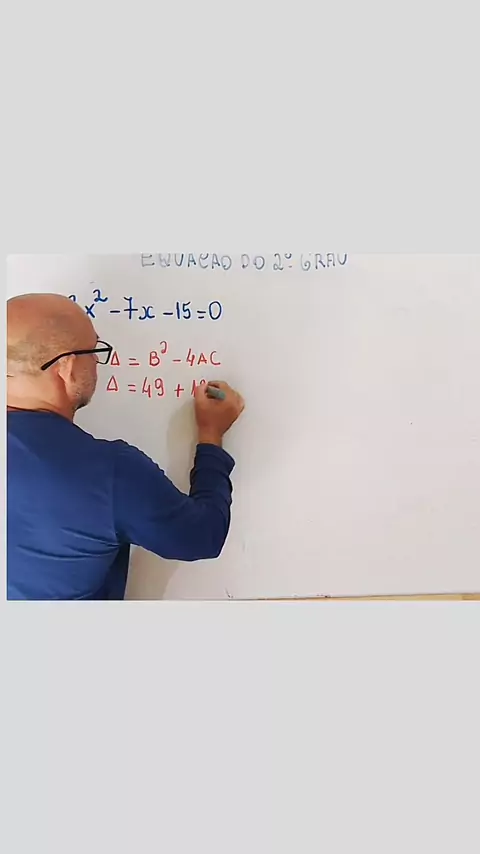 EQUAÇÃO DO 2º GRAU
x² - 7x - 15 = 0
Δ = B² - 4AC
Δ = 49 +